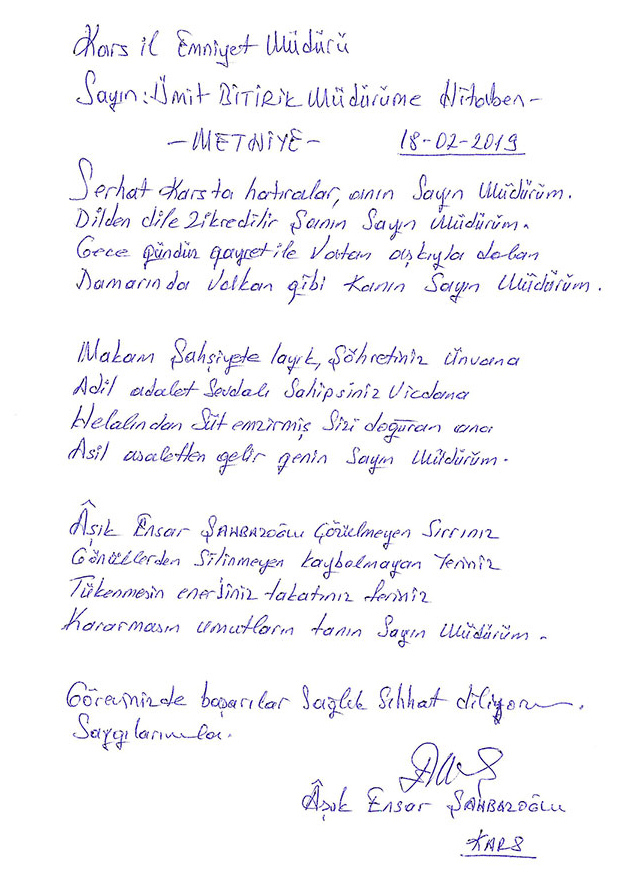 Kars il Emniyet Müdürü
Sayın: Ümit BİTİRİK Müdürüme Hitaben -
- METHİYE -      18-02-2019
Serhat Kars ta hatıralar, anın Sayın Müdürüm.
Dilden dile Zikredilir Şanın Sayın Müdürüm.
Gece gündüz gayret ile Vatan aşkıyla dolan
Damarında Volkan gibi Kanın Sayın Müdürüm.
Makam Şahsiyete layık, Şöhretiniz Ünvana
Adil adalet Sevdalı Sahipsiniz Vicdana
Helalından Süt emzirmiş Sizi doğuran ana
Asil asaletten gelir genin Sayın Müdürüm.
Âşık Ensar ŞAHBAZOĞLU Çözülmeyen Sırrınız
Gönüllerden Silinmeyen kaybolmayan Yeriniz
Tükenmesin enerjiniz takatınız feriniz
Kararmasın umutların tanın Sayın Müdürüm.
Görevinizde başarılar Sağlık Sıhhat diliyorum.
Saygılarımla.
Âşık Ensar ŞAHBAZOĞLU
KARS